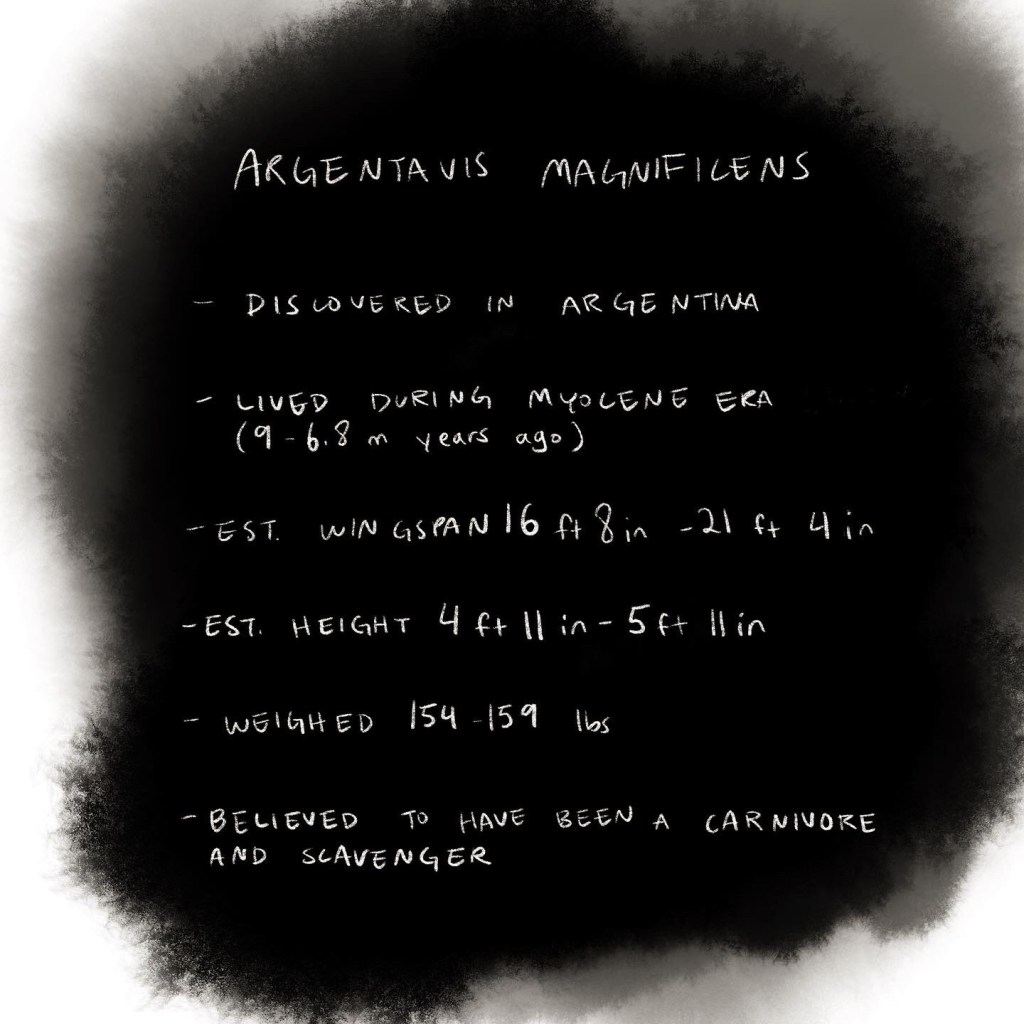 ARGENTAVIS MAGNIFICENS
- DISCOVERED IN ARGENTINA
- LIVED DURING MYOCENE ERA
(9-6.8 m years ago)
- EST. WINGSPAN 16 ft 8 in - 21 ft 4 in
- EST. HEIGHT 4 ft 11 in - 5 ft 11 in
- WEIGHED 154-159 lbs
- BELIEVED TO HAVE BEEN A CARNIVORE
AND SCAVENGER